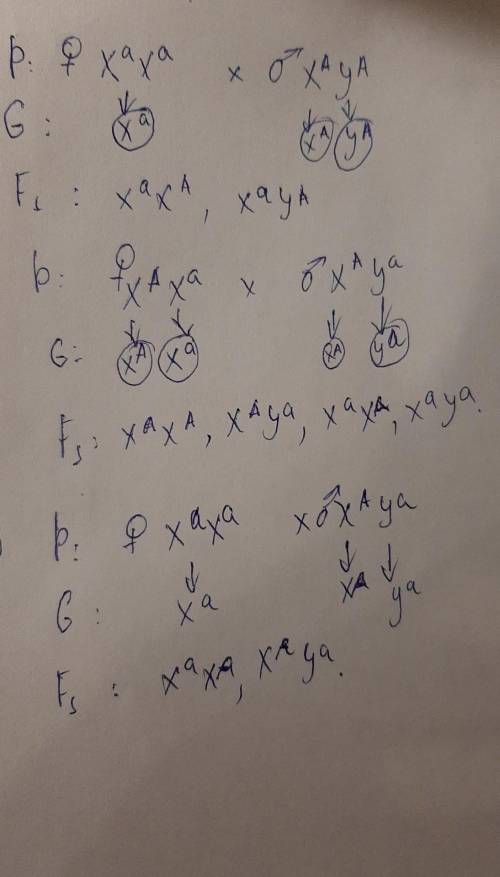 P: ♀ XᵃXᵃ × ♂ XᴬYᴬ
G: Xᵃ Xᴬ Yᴬ
F₁: XᵃXᴬ, XᵃYᴬ
P: ♀ XᴬXᵃ × ♂ XᴬYᵃ
G: Xᴬ Xᵃ Xᴬ Yᵃ
F₁: XᴬXᴬ, XᴬYᵃ, XᵃXᴬ, XᵃYᵃ.
P: ♀ XᵃXᵃ × ♂ XᴬYᵃ
G: Xᵃ Xᴬ Yᵃ
F₁: XᵃXᴬ, XᴬYᵃ.